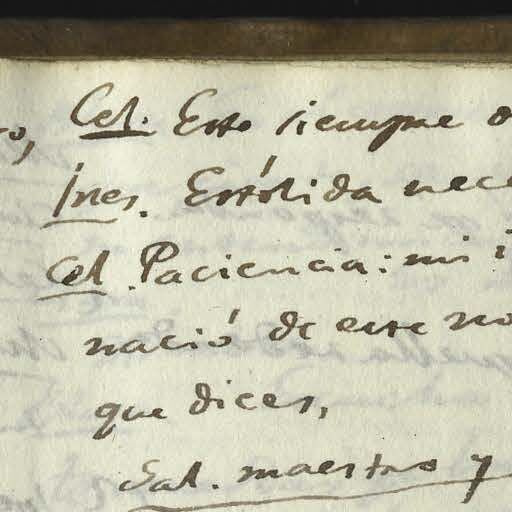 ro, Cel. Esto siempre o
Ines. Estólida nece
Cel. Paciencia: mi i
nació de ese no
que dices,
Sal. maestro y